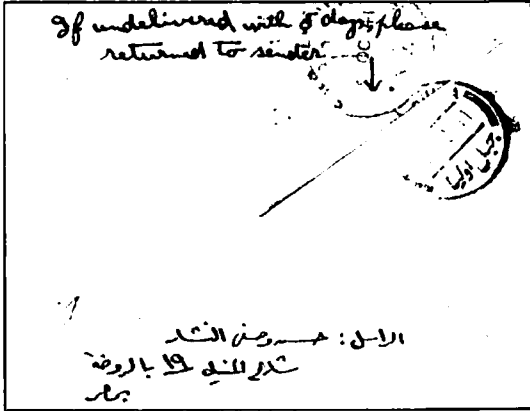 If undelivered with 5 days, please
returned to sender
جبل اولياء
الراسل: حسن وصفى النشار
شارع المنيل 19 بالروضة
بمصر